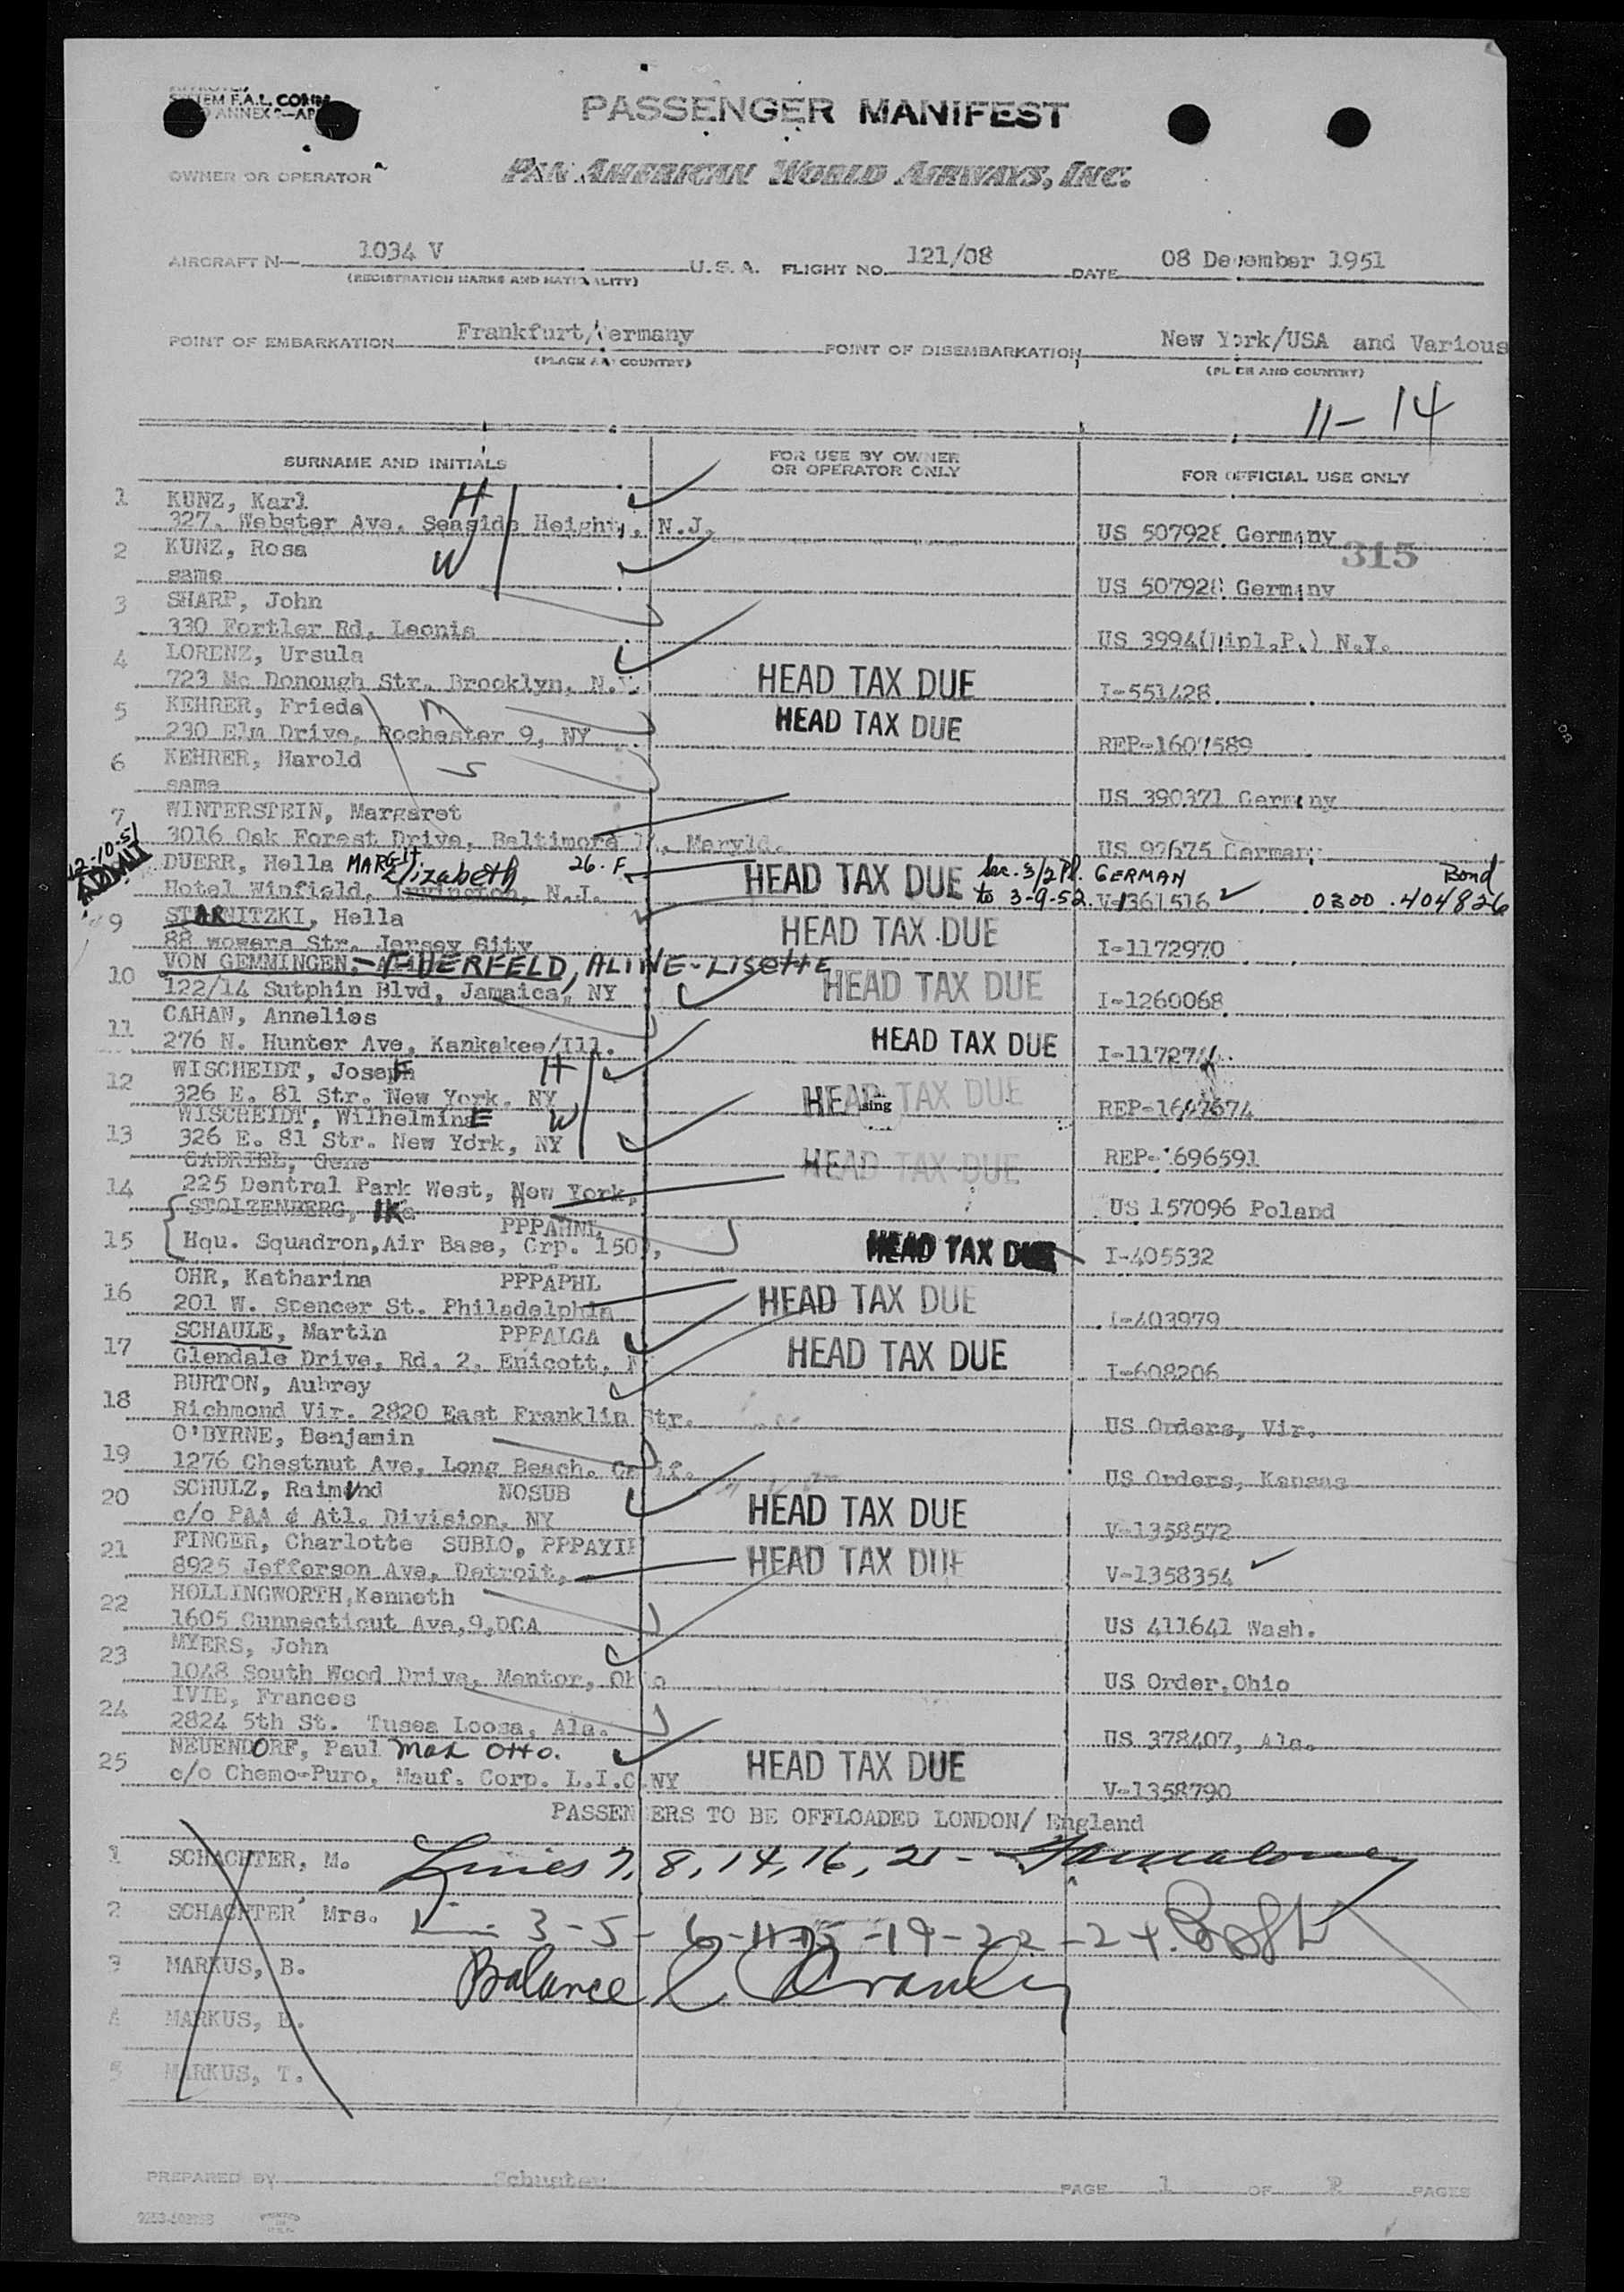 SYSTEM F.A.L. COMM
ANNEX
PASSENGER MANIFEST
OWNER OR OPERATOR PAN AMERICAN WORLD AIRWAYS, INC.
AIRCRAFT N— 1034 V U.S.A. FLIGHT NO. 121/08 DATE 08 December 1951
(REGISTRATION MARKS AND NATIONALITY)
POINT OF EMBARKATION Frankfurt/Germany POINT OF DISEMBARKATION New York/USA and Various
(PLACE AND COUNTRY) (PLACE AND COUNTRY)
11-14
SURNAME AND INITIALS FOR USE BY OWNER OR OPERATOR ONLY FOR OFFICIAL USE ONLY
1 KUNZ, Karl H
327, Webster Ave. Seaside Heights, N.J. US 507928 Germany
315
2 KUNZ, Rosa W
same US 507928 Germany
3 SHARP, John
330 Fortler Rd, Leonia US 3994(Dipl.P.) N.Y.
4 LORENZ, Ursula
723 Mc Donough Str. Brooklyn, N.Y. HEAD TAX DUE I-551428
5 KEHRER, Frieda M HEAD TAX DUE
230 Elm Drive, Rochester 9, NY REP-1607589
6 KEHRER, Harold S
same US 390371 Germany
7 WINTERSTEIN, Margaret
3016 Oak Forest Drive, Baltimore Maryld. US 92675 Germany
12-10-51 ADMIT
DUERR, Hella MARGIT Elizabeth 26. F HEAD TAX DUE Sec. 3/2 Pl. GERMAN Bond
Hotel Winfield, Irvington, N.J. to 3-9-52 V-1361516 0300 404826
9 STARNITZKI, Hella HEAD TAX DUE
88 wowers Str. Jersey City I-1172970
10 VON GEMMINGEN, ALINE-LISETTE HEAD TAX DUE
122/14 Sutphin Blvd, Jamaica, NY I-1260068
11 CAHAN, Annelies
276 N. Hunter Ave, Kankakee/Ill. HEAD TAX DUE
12 WISCHEIDT, Josef H
326 E. 81 Str. New York, NY HEAD TAX DUE
13 WISCHEIDT, Wilhelmine W
326 E. 81 Str. New York, NY HEAD TAX DUE REP-1696591
14 GABRIEL, Gene
225 Dentral Park West, New York, US 157096 Poland
15 STOLZENBERG, PPPAHNL
Hqu. Squadron, Air Base, Grp. HEAD TAX DUE I-405532
16 OHR, Katharina PPPAPHL
201 W. Spencer St. Philadelphia HEAD TAX DUE I-403979
17 SCHAULE, Martin PPPALGA
Glendale Drive, Rd. 2, Enicott, N HEAD TAX DUE I-608206
18 BURTON, Aubrey
Richmond Vir. 2820 East Franklin Str. US Orders, Vir.
19 O'BYRNE, Benjamin
1276 Chestnut Ave, Long Beach, Calif. US Orders, Kansas
20 SCHULZ, Raimund NOSUB
c/o PAA Atl. Division, NY HEAD TAX DUE V-1358572
21 FINGER, Charlotte SUBLO,
8925 Jefferson Ave, Detroit, HEAD TAX DUE V-1358354
22 HOLLINGWORTH, Kenneth
1605 Cunnecticut Ave,9,DCA US 411641 Wash.
23 MYERS, John
1048 South Wood Drive, Mentor, Ohio US Order, Ohio
24 IVIE, Frances
2824 5th St. Tusca Loosa, Ala. US 378407, Ala.
25 NEUENDORF, Paul Max Otto.
c/o Chemo-Puro, Mauf. Corp. L.I.C NY HEAD TAX DUE V-1358790
PASSENGERS TO BE OFFLOADED LONDON/ England
1 SCHACHTER, M. Lines 7, 8, 14, 16, 21 -
2 SCHACHTER Mrs. 3-5-6-11-15-19-22-24
3 MARKUS, B. Balance
4 MARKUS, D.
5 MARKUS, T.
PREPARED BY Schuster PAGE 1 OF 2 PAGES
PRINTED IN U.S.A.